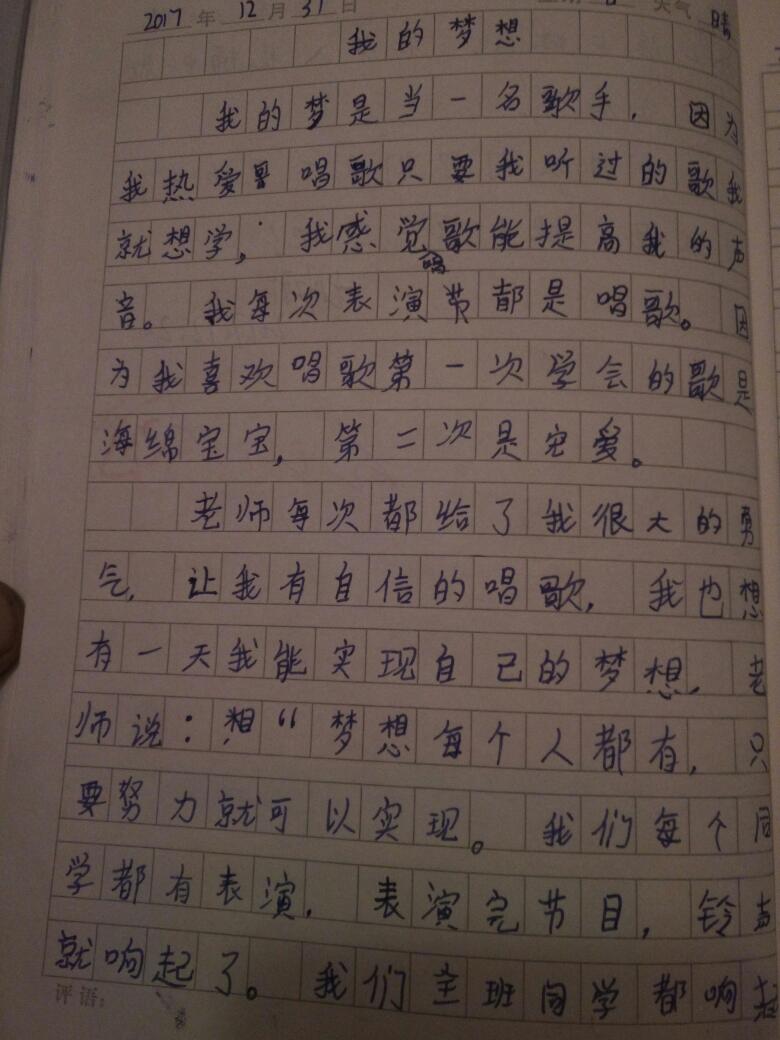 2017年12月31日 天气 晴
我的梦想
我的梦是当一名歌手，因为
我热爱唱歌只要我听过的歌我
就想学，我感觉唱歌能提高我的声
音。我每次表演节都是唱歌。因
为我喜欢唱歌第一次学会的歌是
海绵宝宝，第二次是宠爱。
老师每次都给了我很大的勇
气，让我有自信的唱歌，我也想
有一天我能实现自己的梦想，老
师说：“梦想每个人都有，只
要努力就可以实现。我们每个同
学都有表演，表演完节目，铃声
就响起了。我们全班同学都响起
评语：